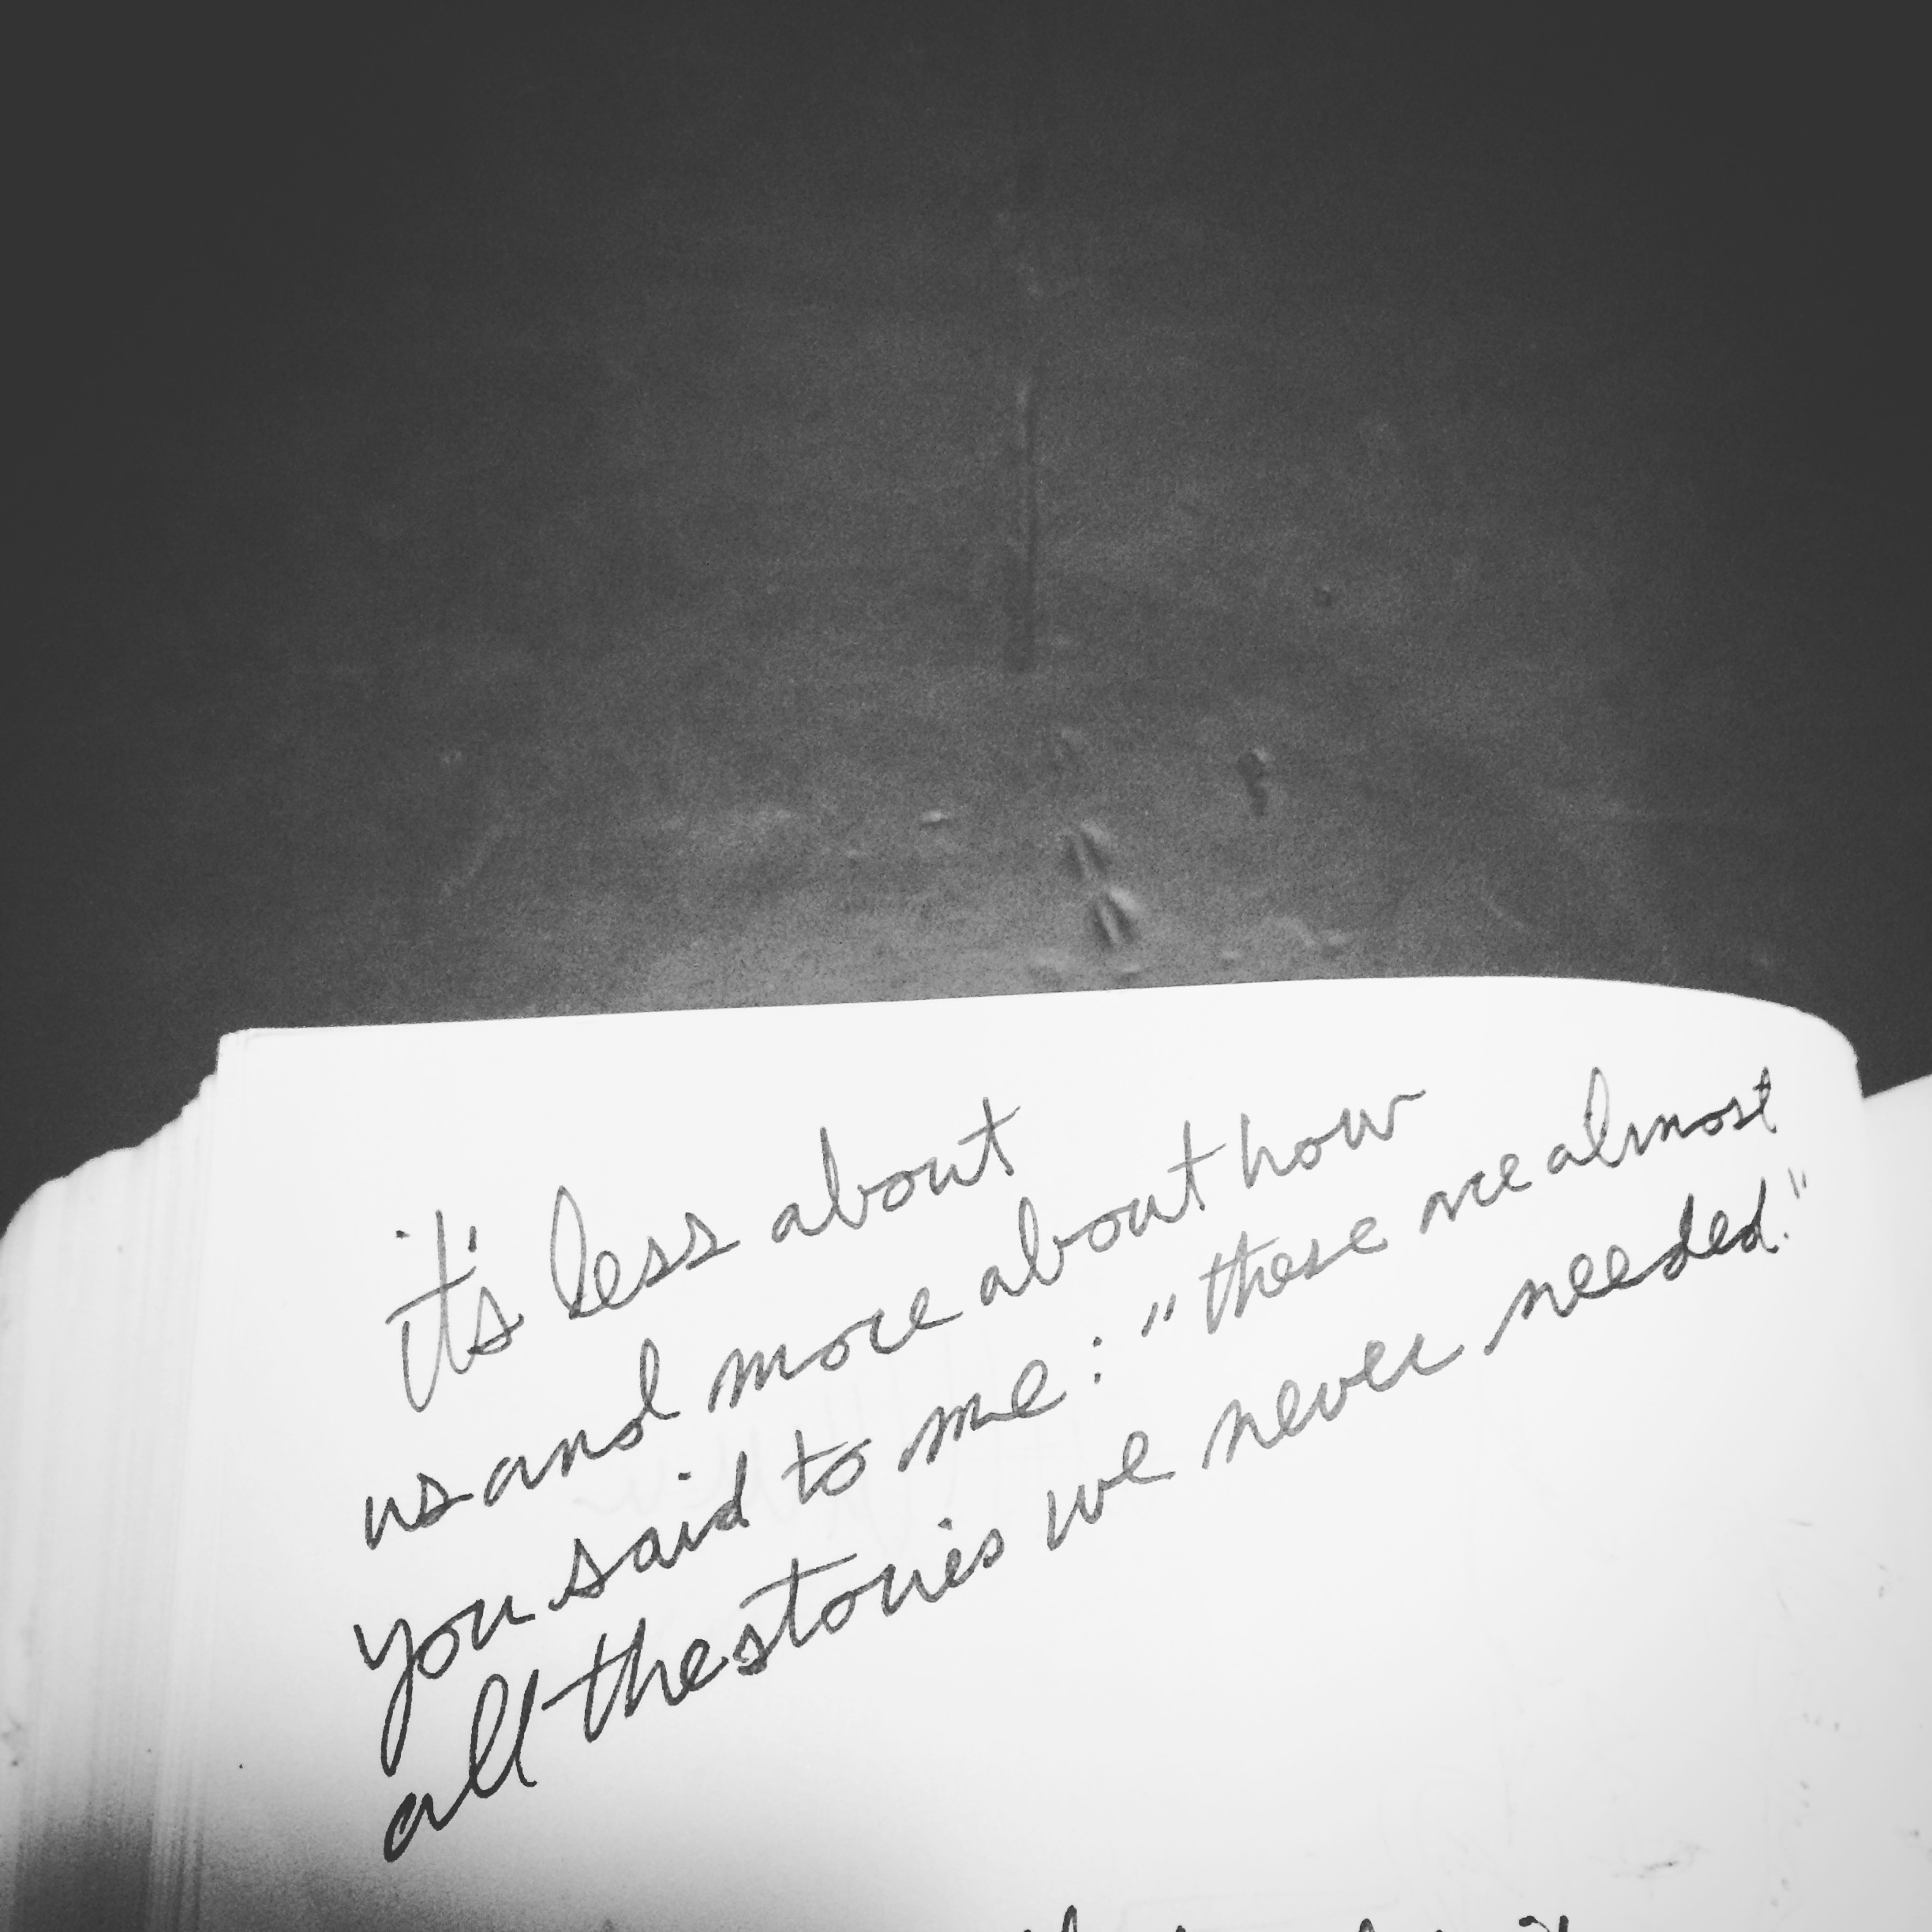 it's less about
us and more about how
you said to me: "these are almost
all the stories we never needed."